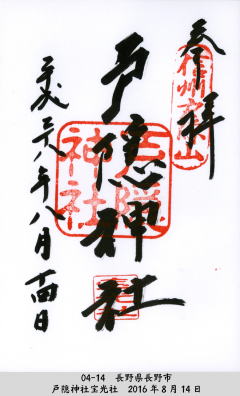 奉拝
信州戸隠山
戸隠神社
戸隠神社
平成二十八年八月十四日
04-14 長野県長野市
戸隠神社宝光社 2016年8月14日